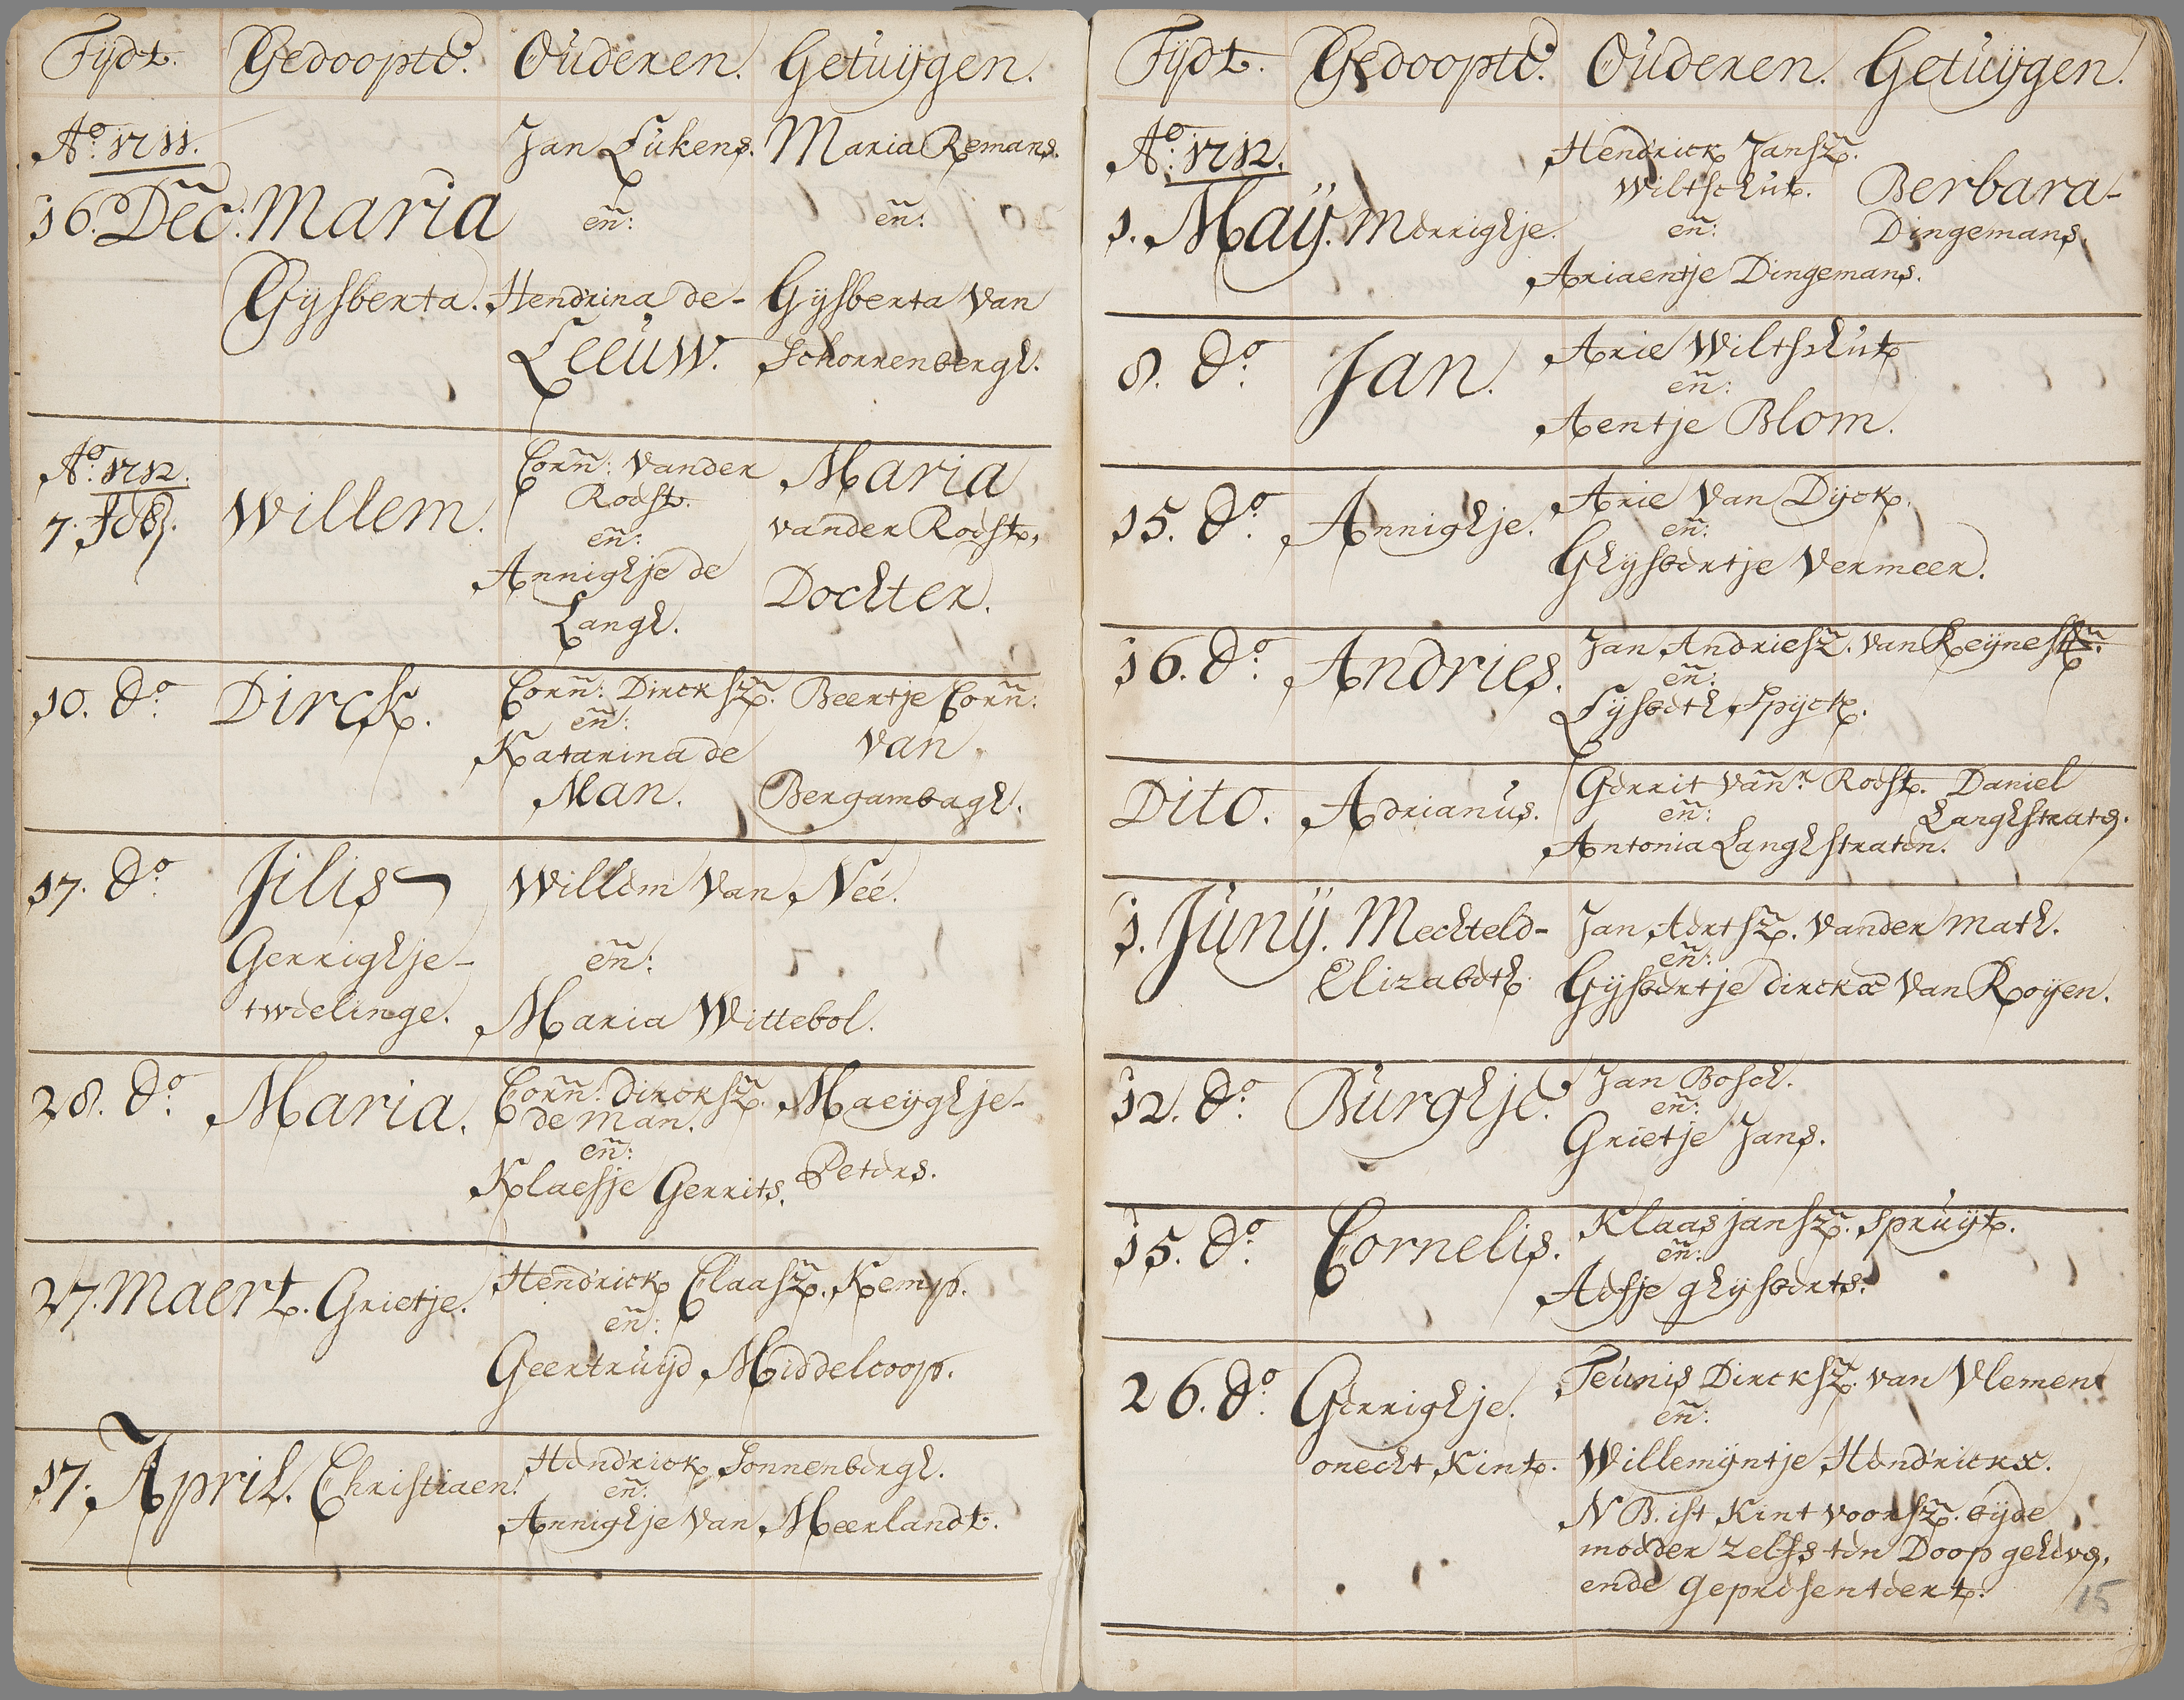 Tijdt. Gedoopte. Ouderen. Getuijgen.
Ao: 1711. Jan Lukens. Maria Remans.
16. Dec: Maria en: en:
Gijsberta. Hendrina de- Gijsberta van
Leeuw. Schorrenbergh.
Ao: 1712. Corn: vander Maria
7. Feb. Willem. Roest. vander Roest,
en:
Annighje de Dochter.
Langh.
10. do. Dirck. Corn: Dircksz. Beertje Corn:
en: van
Katarina de
Man. Bergambagh.
17. do. Jilis Willem van Neé.
Gerrighje- en:
twelinge. Maria Wittebol.
28. do. Maria. Corn: Dircksz. Maeyghje-
de Man.
en: Peters.
Klaesje Gerrits.
27. Maert. Grietje. Hendrick Claasz. Kemp.
en:
Geertruijd Middelcoop.
17. April. Christiaen. Hendrick Sonnenbergh.
en:
Annighje van Meerlandt.
Tijdt. Gedoopte. Ouderen. Getuijgen.
Ao: 1712. Hendrick Jansz.
Wiltschut. Berbara-
1. Maij. Merrighje. en: Dingemans.
Ariaentje Dingemans.
8. do. Jan. Arie Wiltschut
en:
Aentje Blom.
15. do. Annighje. Arie van Dijck.
en:
Ghijsbertje Vermeer.
16. do. Andries. Jan Andriesz. van
en:
Lijsbeth Spijck.
Dito. Adrianus. Gerrit vanr Roest. Daniel
en: Langhstrate.
Antonia Langhstraten.
1. Junij. Mechteld- Jan Aertsz. vander Math.
en:
Elizabeth. Gijsbertje Dirckx van Roijen.
12. do. Burghje. Jan Bosch.
en:
Grietje Jans.
15. do. Cornelis. Klaas Jansz. Spruijt.
en:
Aefje Ghijsberts.
26. do. Gerrighje. Teunis Dircksz. van Vlemen
en:
onecht Kint. Willemijntje Hendrickx.
NB. ist Kint voorsz. bijde
moeder zelfs ten Doop geheve,
ende gepresenteert.
15